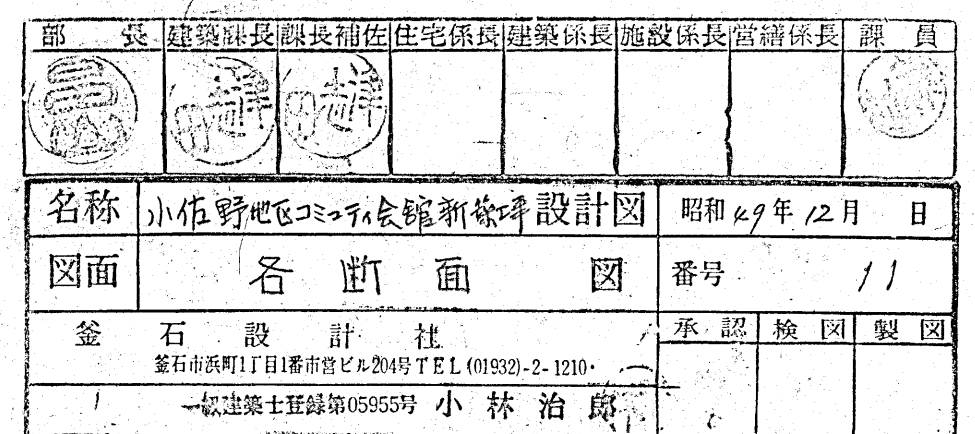 部長 建築課長 課長補佐 住宅係長 建築係長 施設係長 営繕係長 課員
名称 小佐野地区コミュニティ会館新築工事設計図 昭和49年12月 日
図面 各断面図 番号 11
釜石設計社 承認 検図 製図
釜石市浜町1丁目1番市営ビル204号TEL(01932)-2-1210
一級建築士登録第05955号 小林治郎